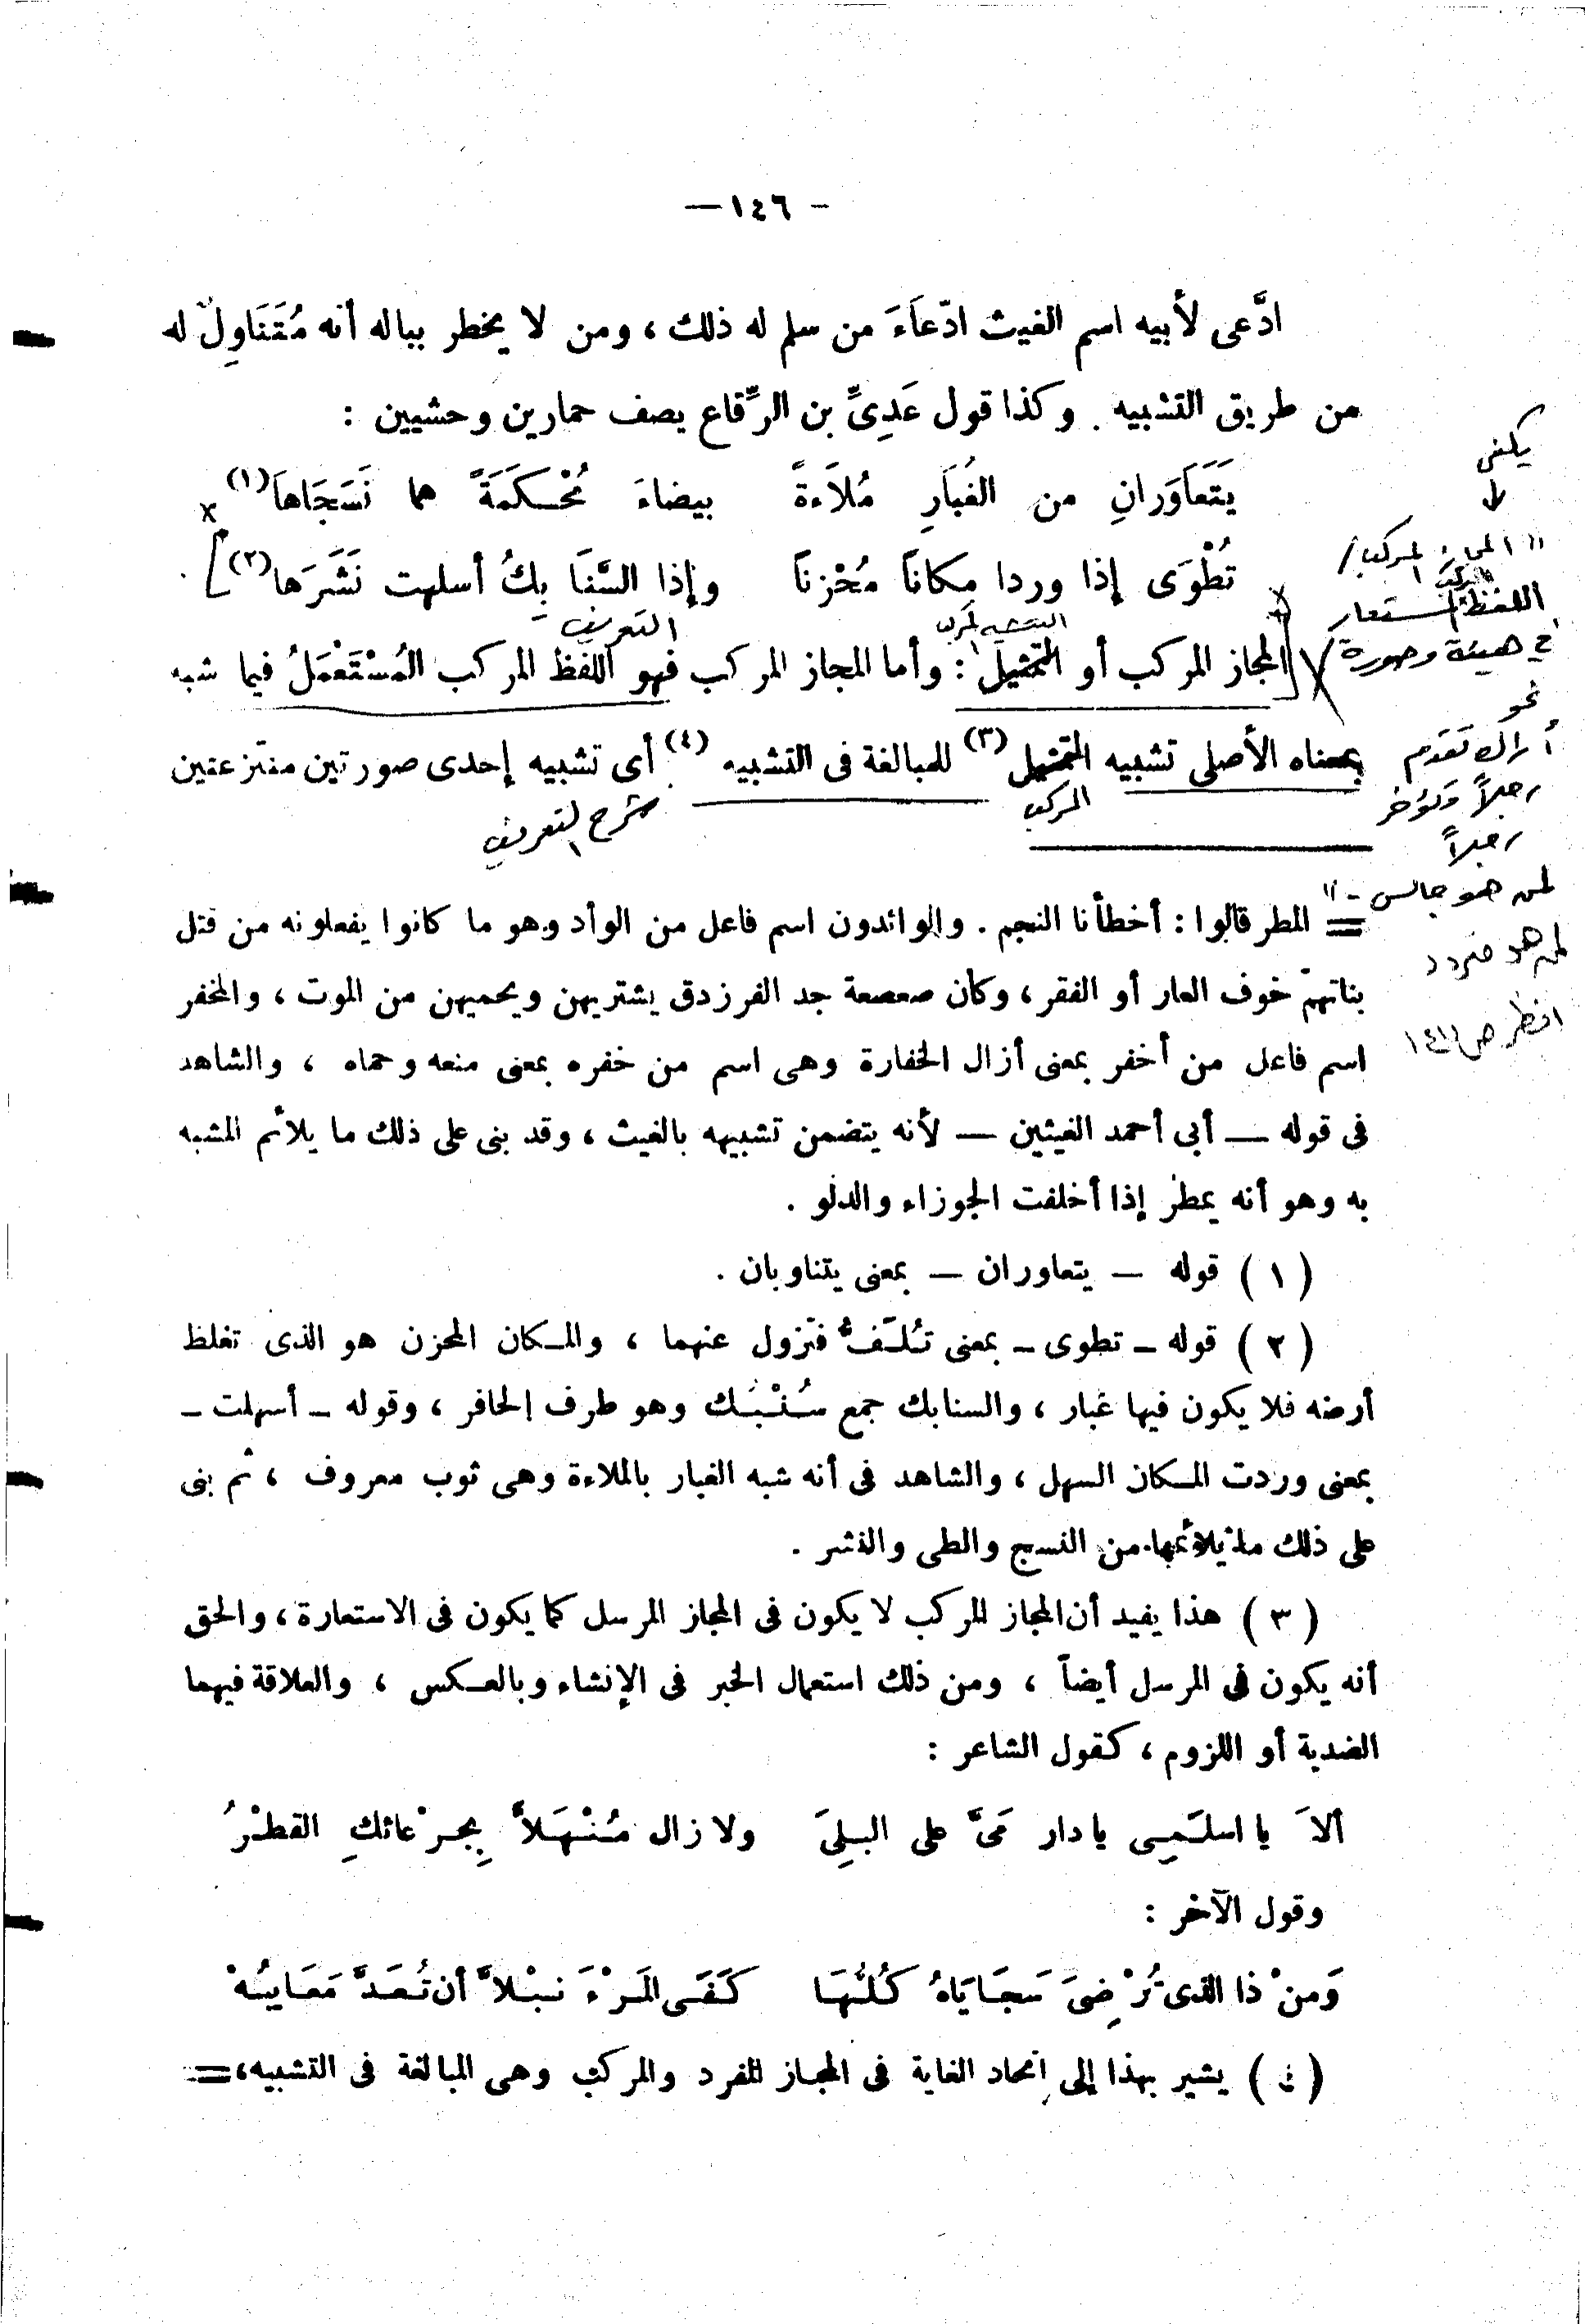 — ١٤٦ —
ادَّعى لأبيه اسم الغيث ادّعَاءَ من سلم له ذلك ، ومن لا يخطر بباله أنه مُتَنَاوِلٌ له
من طريق التشبيه . وكذا قول عَدِىِّ بن الرِّقاع يصف حمارين وحشيين :
يَتَعَاوَرانِ من الغُبَارِ مُلاَءةً بيضاءَ مُحْكَمَةً هما نَسَجَاهاَ (١)
تُطْوَى إذا وردا مكاناً مُحْزِناً وإذا السَّنَا بِكُ أسهلت نَشَرَها (٢)
التعريف
التشبيه المركب
المجاز المركب أو التمثيل : وأما المجاز المركب فهو اللفظ المركب المُسْتَعْمَلُ فيما شبه
بمعناه الأصلى تشبيه التمثيل (٣) للمبالغة فى التشبيه (٤) أى تشبيه إحدى صورتين منتزعتين
المركب
شرح التعريف
يكفي
" المجاز المركب /
المركب
اللفظ المستعار
في هيئة وصورة
نحو
أراك تقدم
رجلاً وتؤخر
رجلاً
لمن هو جالس - "
لمن هو متردد
انظر ص ١٤١
= المطر قالوا : أخطأنا النجم . والوائدون اسم فاعل من الوأد وهو ما كانوا يفعلونه من قتل
بناتهم خوف العار أو الفقر ، وكان صعصعة جد الفرزدق يشتريهن ويحميهن من الموت ، والمخفر
اسم فاعل من أخفر بمعنى أزال الخفارة وهى اسم من خفره بمعنى منعه وحماه ، والشاهد
فى قوله — أبى أحمد الغيثين — لأنه يتضمن تشبيهه بالغيث ، وقد بنى على ذلك ما يلائم المشبه
به وهو أنه يمطر إذا أخلفت الجوزاء والدلو .
( ١ ) قوله — يتعاوران — بمعنى يتناوبان .
( ٢ ) قوله — تطوى — بمعنى تُلَفُّ فتزول عنهما ، والمكان المحزن هو الذى تغلظ
أرضه فلا يكون فيها غبار ، والسنابك جمع سُنْبُك وهو طرف الحافر ، وقوله — أسهلت —
بمعنى وردت المكان السهل ، والشاهد فى أنه شبه الغبار بالملاءة وهى ثوب معروف ، ثم بنى
على ذلك ما يلائمها من النسج والطى والنشر .
( ٣ ) هذا يفيد أن المجاز المركب لا يكون فى المجاز المرسل كما يكون فى الاستعارة ، والحق
أنه يكون فى المرسل أيضاً ، ومن ذلك استعمال الخبر فى الإنشاء وبالعكس ، والعلاقة فيهما
الضدية أو اللزوم ، كقول الشاعر :
ألاَ يا اسلَمِى يا دار مَىَّ على البِلِىَ ولا زال مُنْهَلاًّ بِجرْعائكِ القطْرُ
وقول الآخر :
وَمنْ ذا الذى تُرْضىَ سَجَايَاهُ كُلُّهَا كَفَى المَرْءَ نبْلاً أن تُعَدَّ مَعَايبُهْ
( ٤ ) يشير بهذا إلى اتحاد الغاية فى المجاز المفرد والمركب وهى المبالغة فى التشبيه ، =